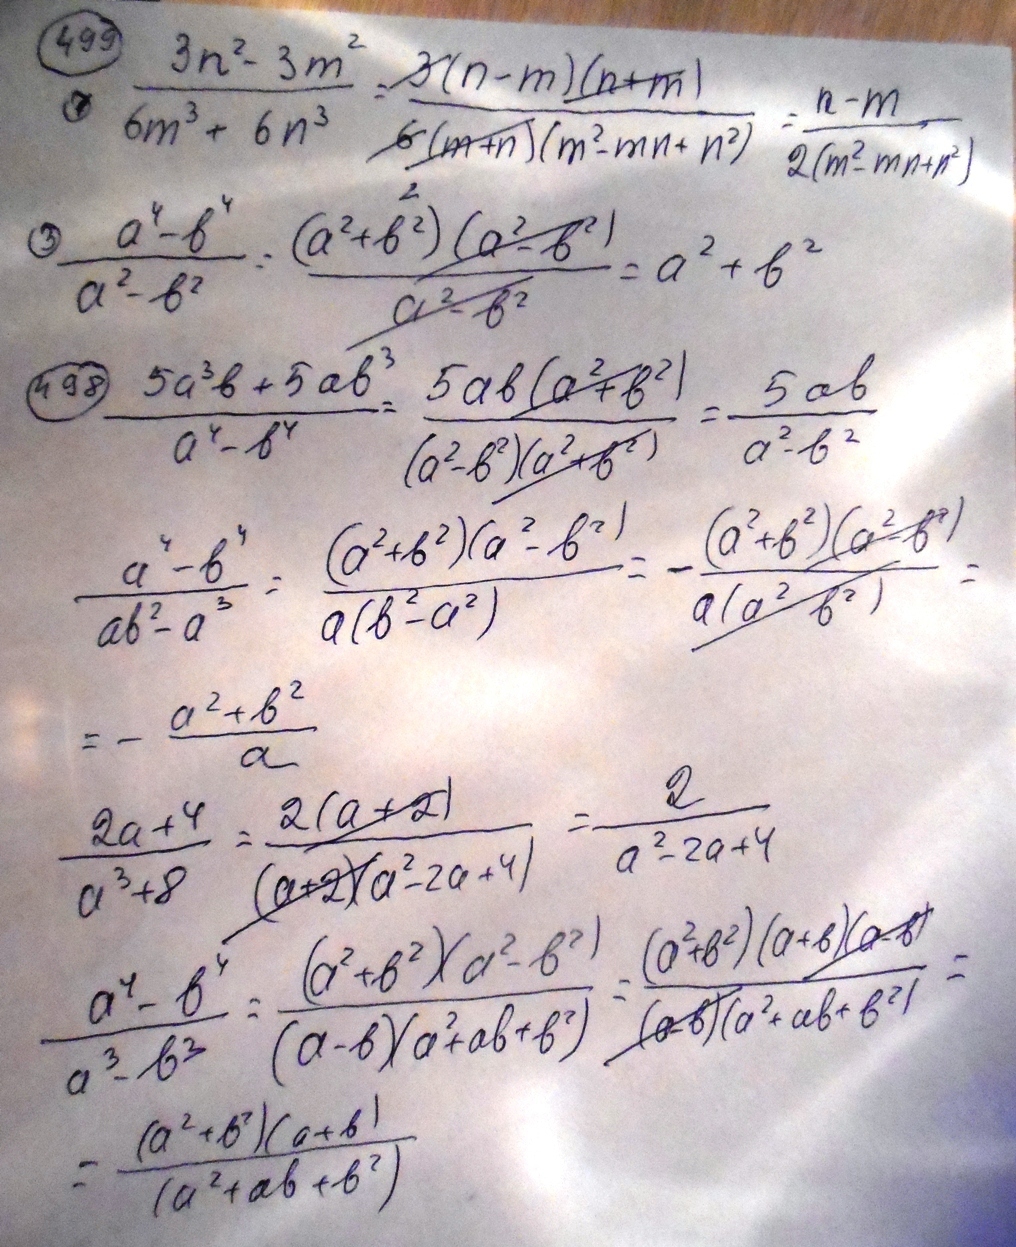 499 3n² - 3m² / 6m³ + 6n³ = 3(n-m)(n+m) / 6(m+n)(m²-mn+n²) = n-m / 2(m²-mn+n²)
2
③ a⁴-b⁴ / a²-b² = (a²+b²)(a²-b²) / a²-b² = a²+b²
498 5a³b + 5ab³ / a⁴-b⁴ = 5ab(a²+b²) / (a²-b²)(a²+b²) = 5ab / a²-b²
a⁴-b⁴ / ab²-a³ = (a²+b²)(a²-b²) / a(b²-a²) = - (a²+b²)(a²-b²) / a(a²-b²) =
= - a²+b² / a
2a+4 / a³+8 = 2(a+2) / (a+2)(a²-2a+4) = 2 / a²-2a+4
a⁴-b⁴ / a³-b³ = (a²+b²)(a²-b²) / (a-b)(a²+ab+b²) = (a²+b²)(a+b)(a-b) / (a-b)(a²+ab+b²) =
= (a²+b²)(a+b) / (a²+ab+b²)